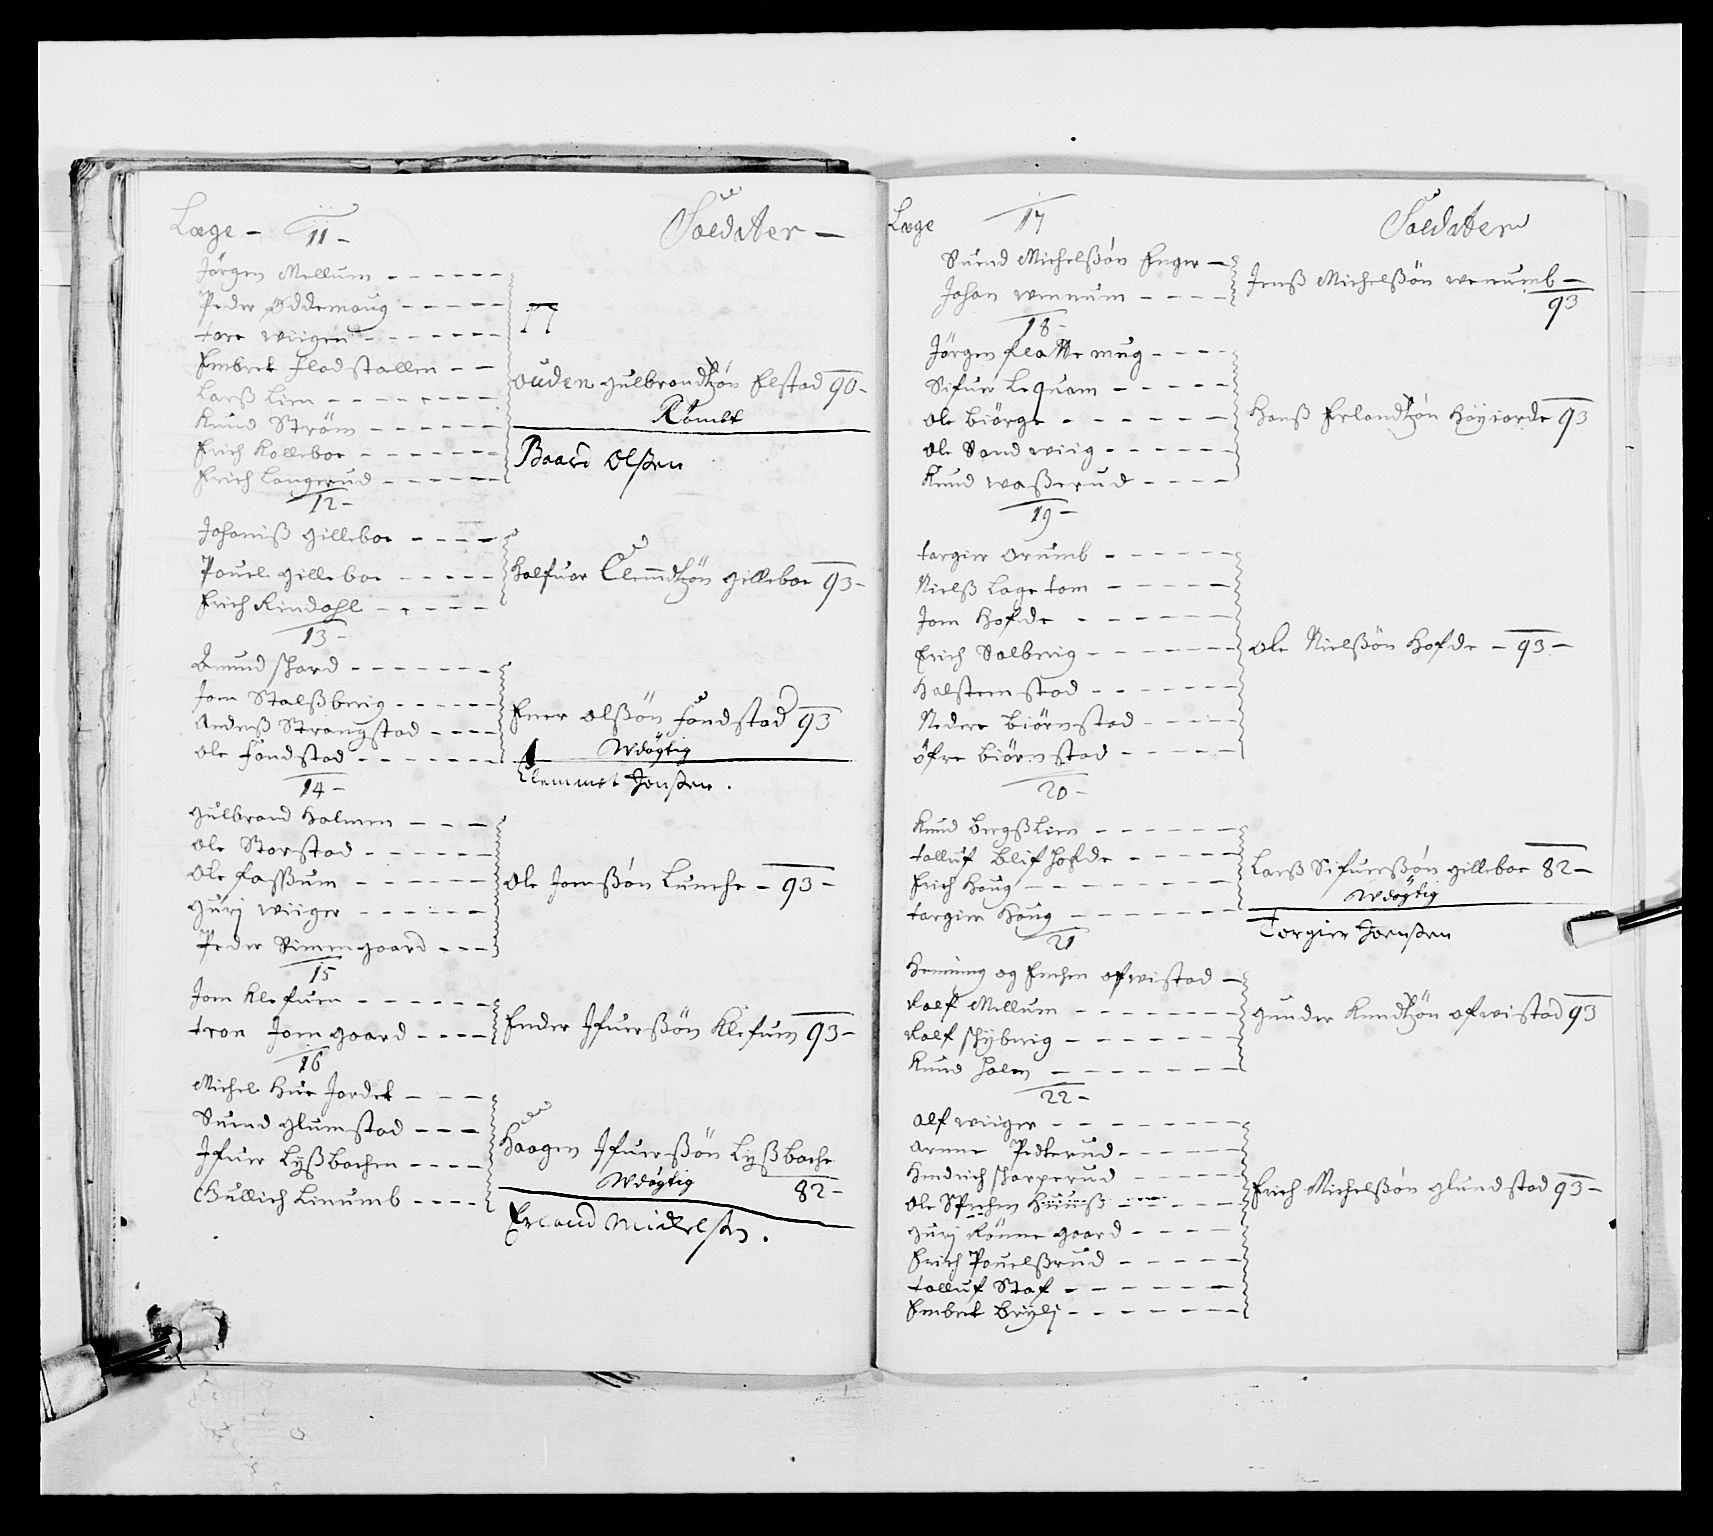 Læge - 11 - Soldater -
Jörgen Mellum
Peder Oddemoug
tore wiigen
Embret Fladstallen
Larß Lien
Knud Ström
Erich Kolleboe
Erich Langerud
ouden gulbrandtzön Elstad 90 -
Römbt
Baard Olßen
12 -
Johaniß gilleboe
Pouel gilleboe
Erich Rindahl
Halfuor Clemmdtzön gilleboe 93 -
13 -
Amund schard
Jon Stalßberig
Anderß Strangstad
ole Fondstad
Ener olßön Fondstad 93
Wdögtig
Clemmet Jonßen.
14 -
gulbrand Holmen
ole Storstad
ole Foßßum
guri wiiger
Peder Rimmgaard
ole Jonßön Lunche - 93 -
15
Jon Klefuen
tron Jomgaard
Ender Ifuerßön Klefuen 93 -
16
Michel Hue Jordet
Suend glumstad
Ifuer Lyßbachen
Gullich Linumb
Haagen Ifuerßön Lyßbache
Wdögtig 82 -
Erland Mickelsen.
Læge 17 Soldater
Suend Michelßön Enger
Johan wennum
Jenß Michelßön wenumb -
93
18 -
Jörgen flattemug
Sifuer Lequam
ole biörge
ole Sandwiig
Knud waßerud
Hanß Erlandtzön Höyiorde 93
19 -
torgier orumb
Nielß Lagetom
Jon Hofde
Erich Solberig
Halsteenstad
Nedere biörnstad
öfre biörnstad
ole Nielßön Hofde - 93 -
20 -
Knud bergßlien
tolluf blifhofde
Erich Houg
torgier Houg
Larß Sifuerßön gilleboe 82 -
Wdögtig
Torgier Joenßen
21
Henning og Enchen ofwistad
Ralf Mellum
Ralf schyberig
Knud Holen
gunder Knudtzön ofwistad 93
22 -
Alf wiiger
Arnne Pederud
Hendrich schorperud
ole Huuß
guri Rönnegaard
Erich Pouelßrud
tolluf Staf
Embret brylj
Erich Michelßön glundstad 93 -